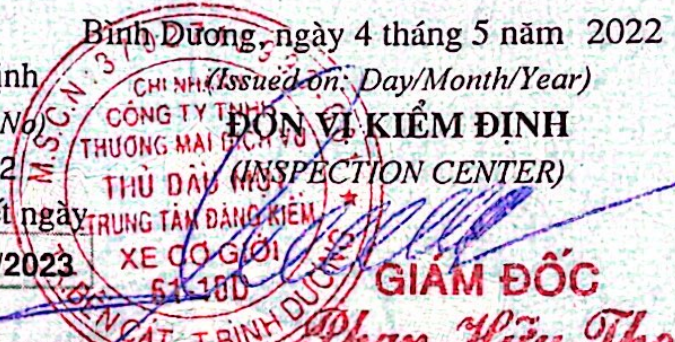 Bình Dương, ngày 4 tháng 5 năm 2022
(Issued on: Day/Month/Year)
ĐƠN VỊ KIỂM ĐỊNH
(INSPECTION CENTER)
GIÁM ĐỐC
Phan Hữu
M.S.C.N: 3
CHI NH
CÔNG TY TNHH
THƯƠNG MẠI DỊCH VỤ
THỦ DẦU MỘT
TRUNG TÂM ĐĂNG KIỂM
XE CƠ GIỚI
61-10D
BẾN CÁT - T. BÌNH DƯƠNG
No)
2
ngày
/2023